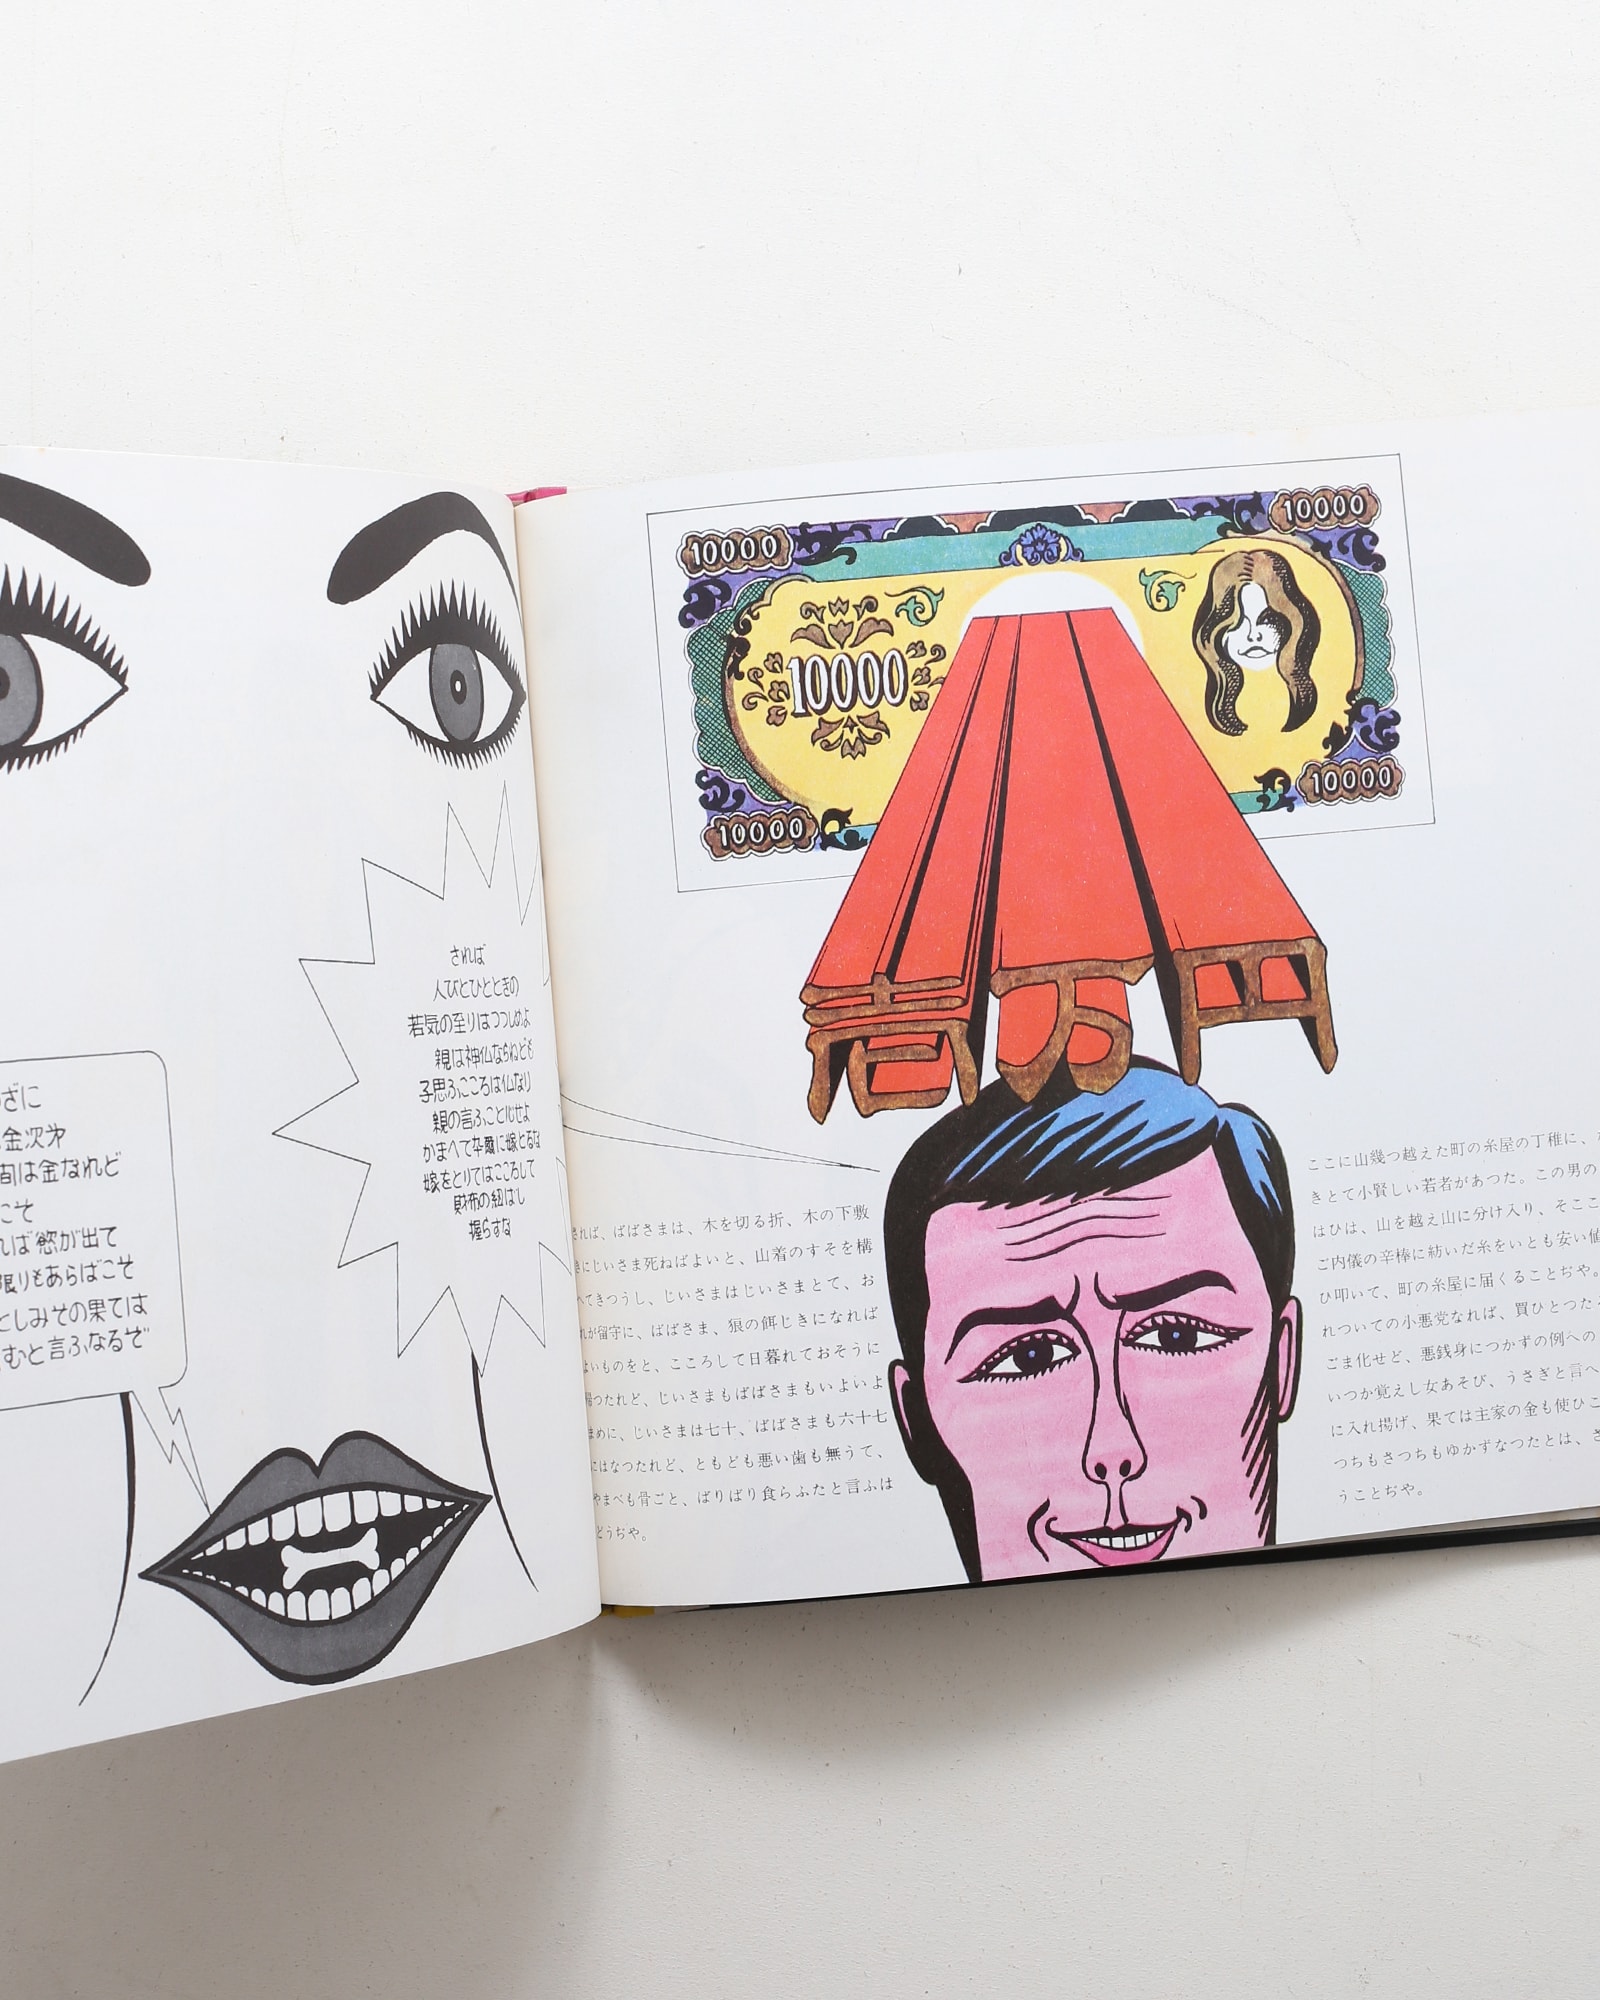 のざに
金次㐧
間は金なれど
こそ
れば慾が出て
限りもあらばこそ
としみその果ては
むと言ふなるぞ
されば
人びとひとときの
若気の至りはつつしめよ
親は神仏ならねども
子思ふこころは仏なり
親の言ふこと心せよ
かまへて卒爾に嫁とるな
嫁をとりてはこころして
財布の紐はし
握らすな
10000
10000
10000
10000
10000
壱万円
されば、ばばさまは、木を切る折、木の下敷
きにじいさま死ねばよいと、山着のすそを構
へてきつうし、じいさまはじいさまとて、お
れが留守に、ばばさま、狼の餌じきになれば
よいものをと、こころして日暮れておそうに
帰つたれど、じいさまもばばさまもいよいよ
まめに、じいさまは七十、ばばさまも六十七
にはなつたれど、ともども悪い歯も無うて、
やまべも骨ごと、ばりばり食らふたと言ふは
どうぢや。
ここに山幾つ越えた町の糸屋の丁稚に、
きとて小賢しい若者があつた。この男の
はひは、山を越え山に分け入り、そここ
ご内儀の辛棒に紡いだ糸をいとも安い値
ひ叩いて、町の糸屋に届くることぢや。
れついての小悪党なれば、買ひとつた
ごま化せど、悪銭身につかずの例への
いつか覚えし女あそび、うさぎと言へ
に入れ揚げ、果ては主家の金も使ひこ
つちもさつちもゆかずなつたとは、さ
うことぢや。